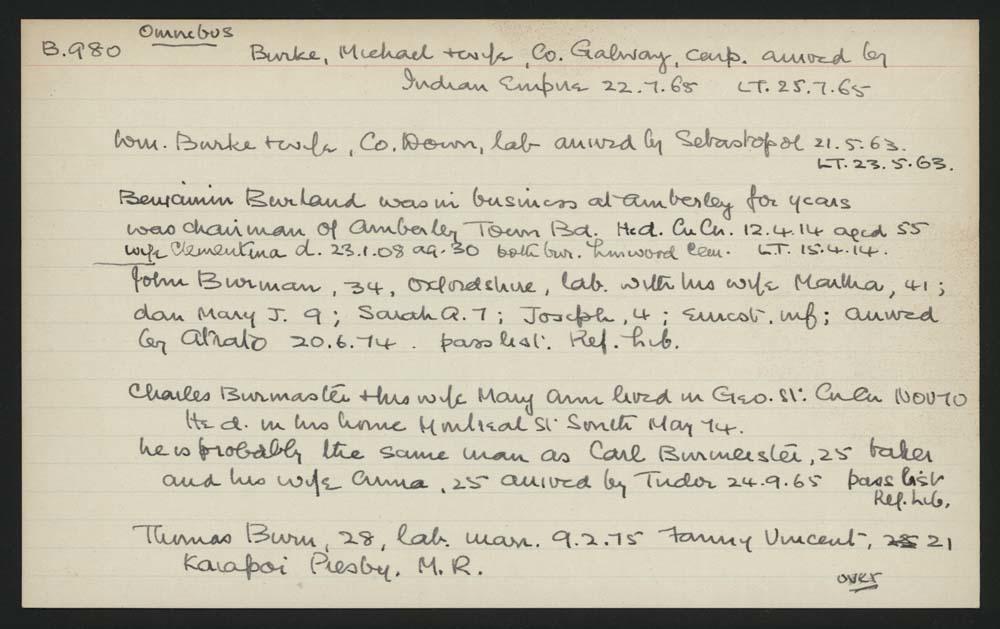 Omnibus
B.980 Burke, Michael + wife, Co. Galway, carp. arrived by
Indian Empire 22.7.65 LT. 25.7.65
Wm. Burke + wife, Co. Down, lab arrived by Sebastopol 21.5.63.
LT. 23.5.63.
Benjamin Burland was in business at Amberley for years
was chairman of Amberley Town Bd. He d. CuCu. 12.4.14 aged 55
wife Clementina d. 23.1.08 ag. 30 both bur. Linwood Cem. L.T. 15.4.14.
John Burman, 34, Oxfordshire, lab. with his wife Martha, 41;
dau Mary J. 9; Sarah A. 7; Joseph, 4; Ernest. inf; arrived
by Atrato 20.6.74. pass list. Ref. Lib.
Charles Burmaster + his wife Mary Ann lived in Geo. St. CuCu Nov 70
He d. in his home Montreal St South May 74.
he is probably the same man as Carl Burmeister, 25 baker
and his wife Anna, 25 arrived by Tudor 24.9.65 pass list
Ref. Lib.
Thomas Burn, 28, lab. marr. 9.2.75 Fanny Vincent, 28 21
Kaiapoi Presby. M.R.
over